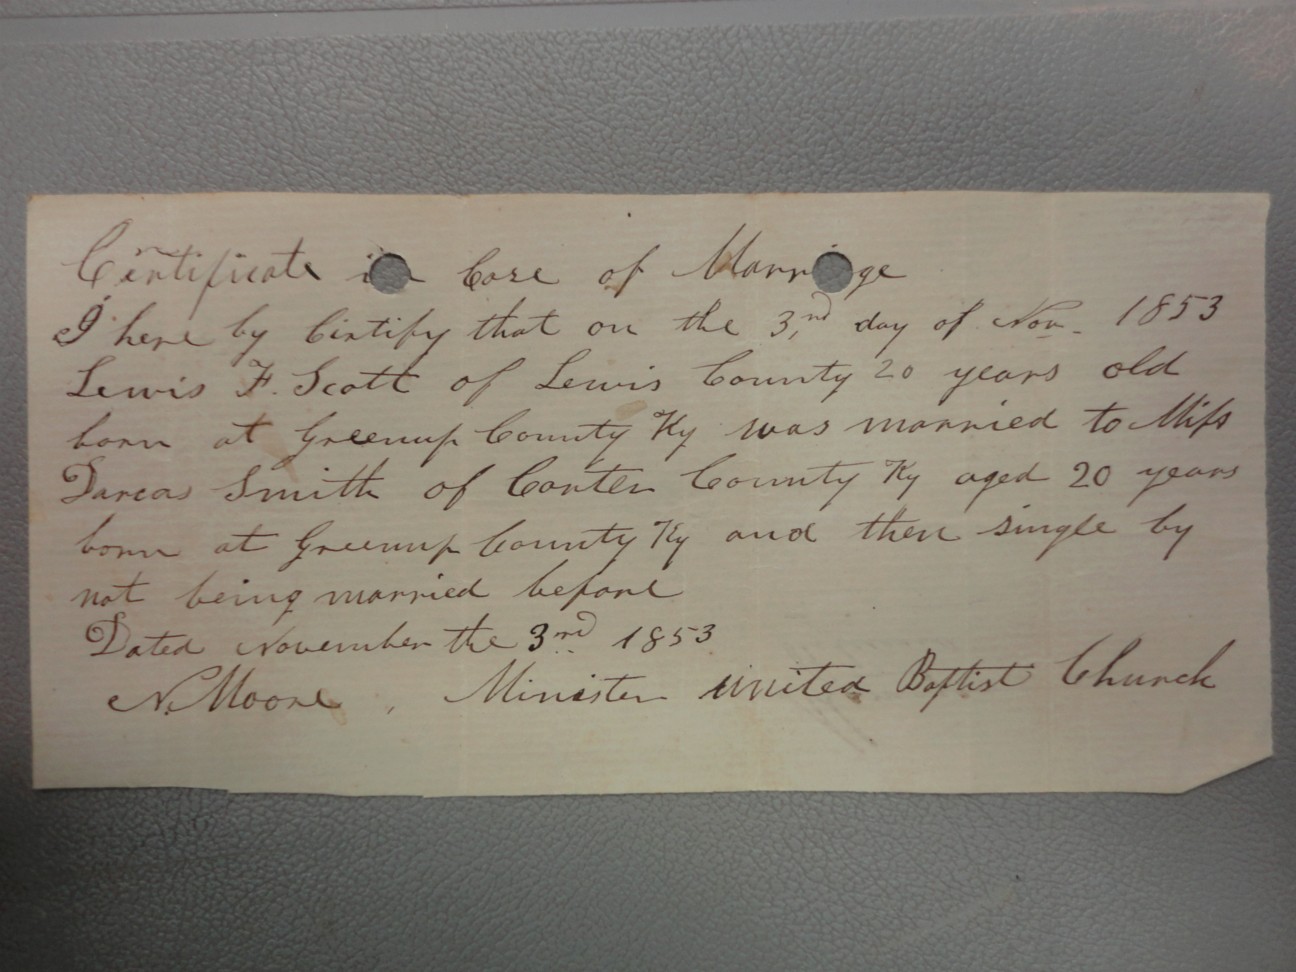 Certificate in Case of Marriage
I here by Certify that on the 3,nd day of Nov. 1853
Lewis F. Scott of Lewis County 20 years old
born at Greenup County Ky was married to Miss
Darcas Smith of Carter County Ky aged 20 years
born at Greenup County Ky and then single by
not being married before
Dated November the 3rd 1853
N. Moore, Minister united Baptist Church